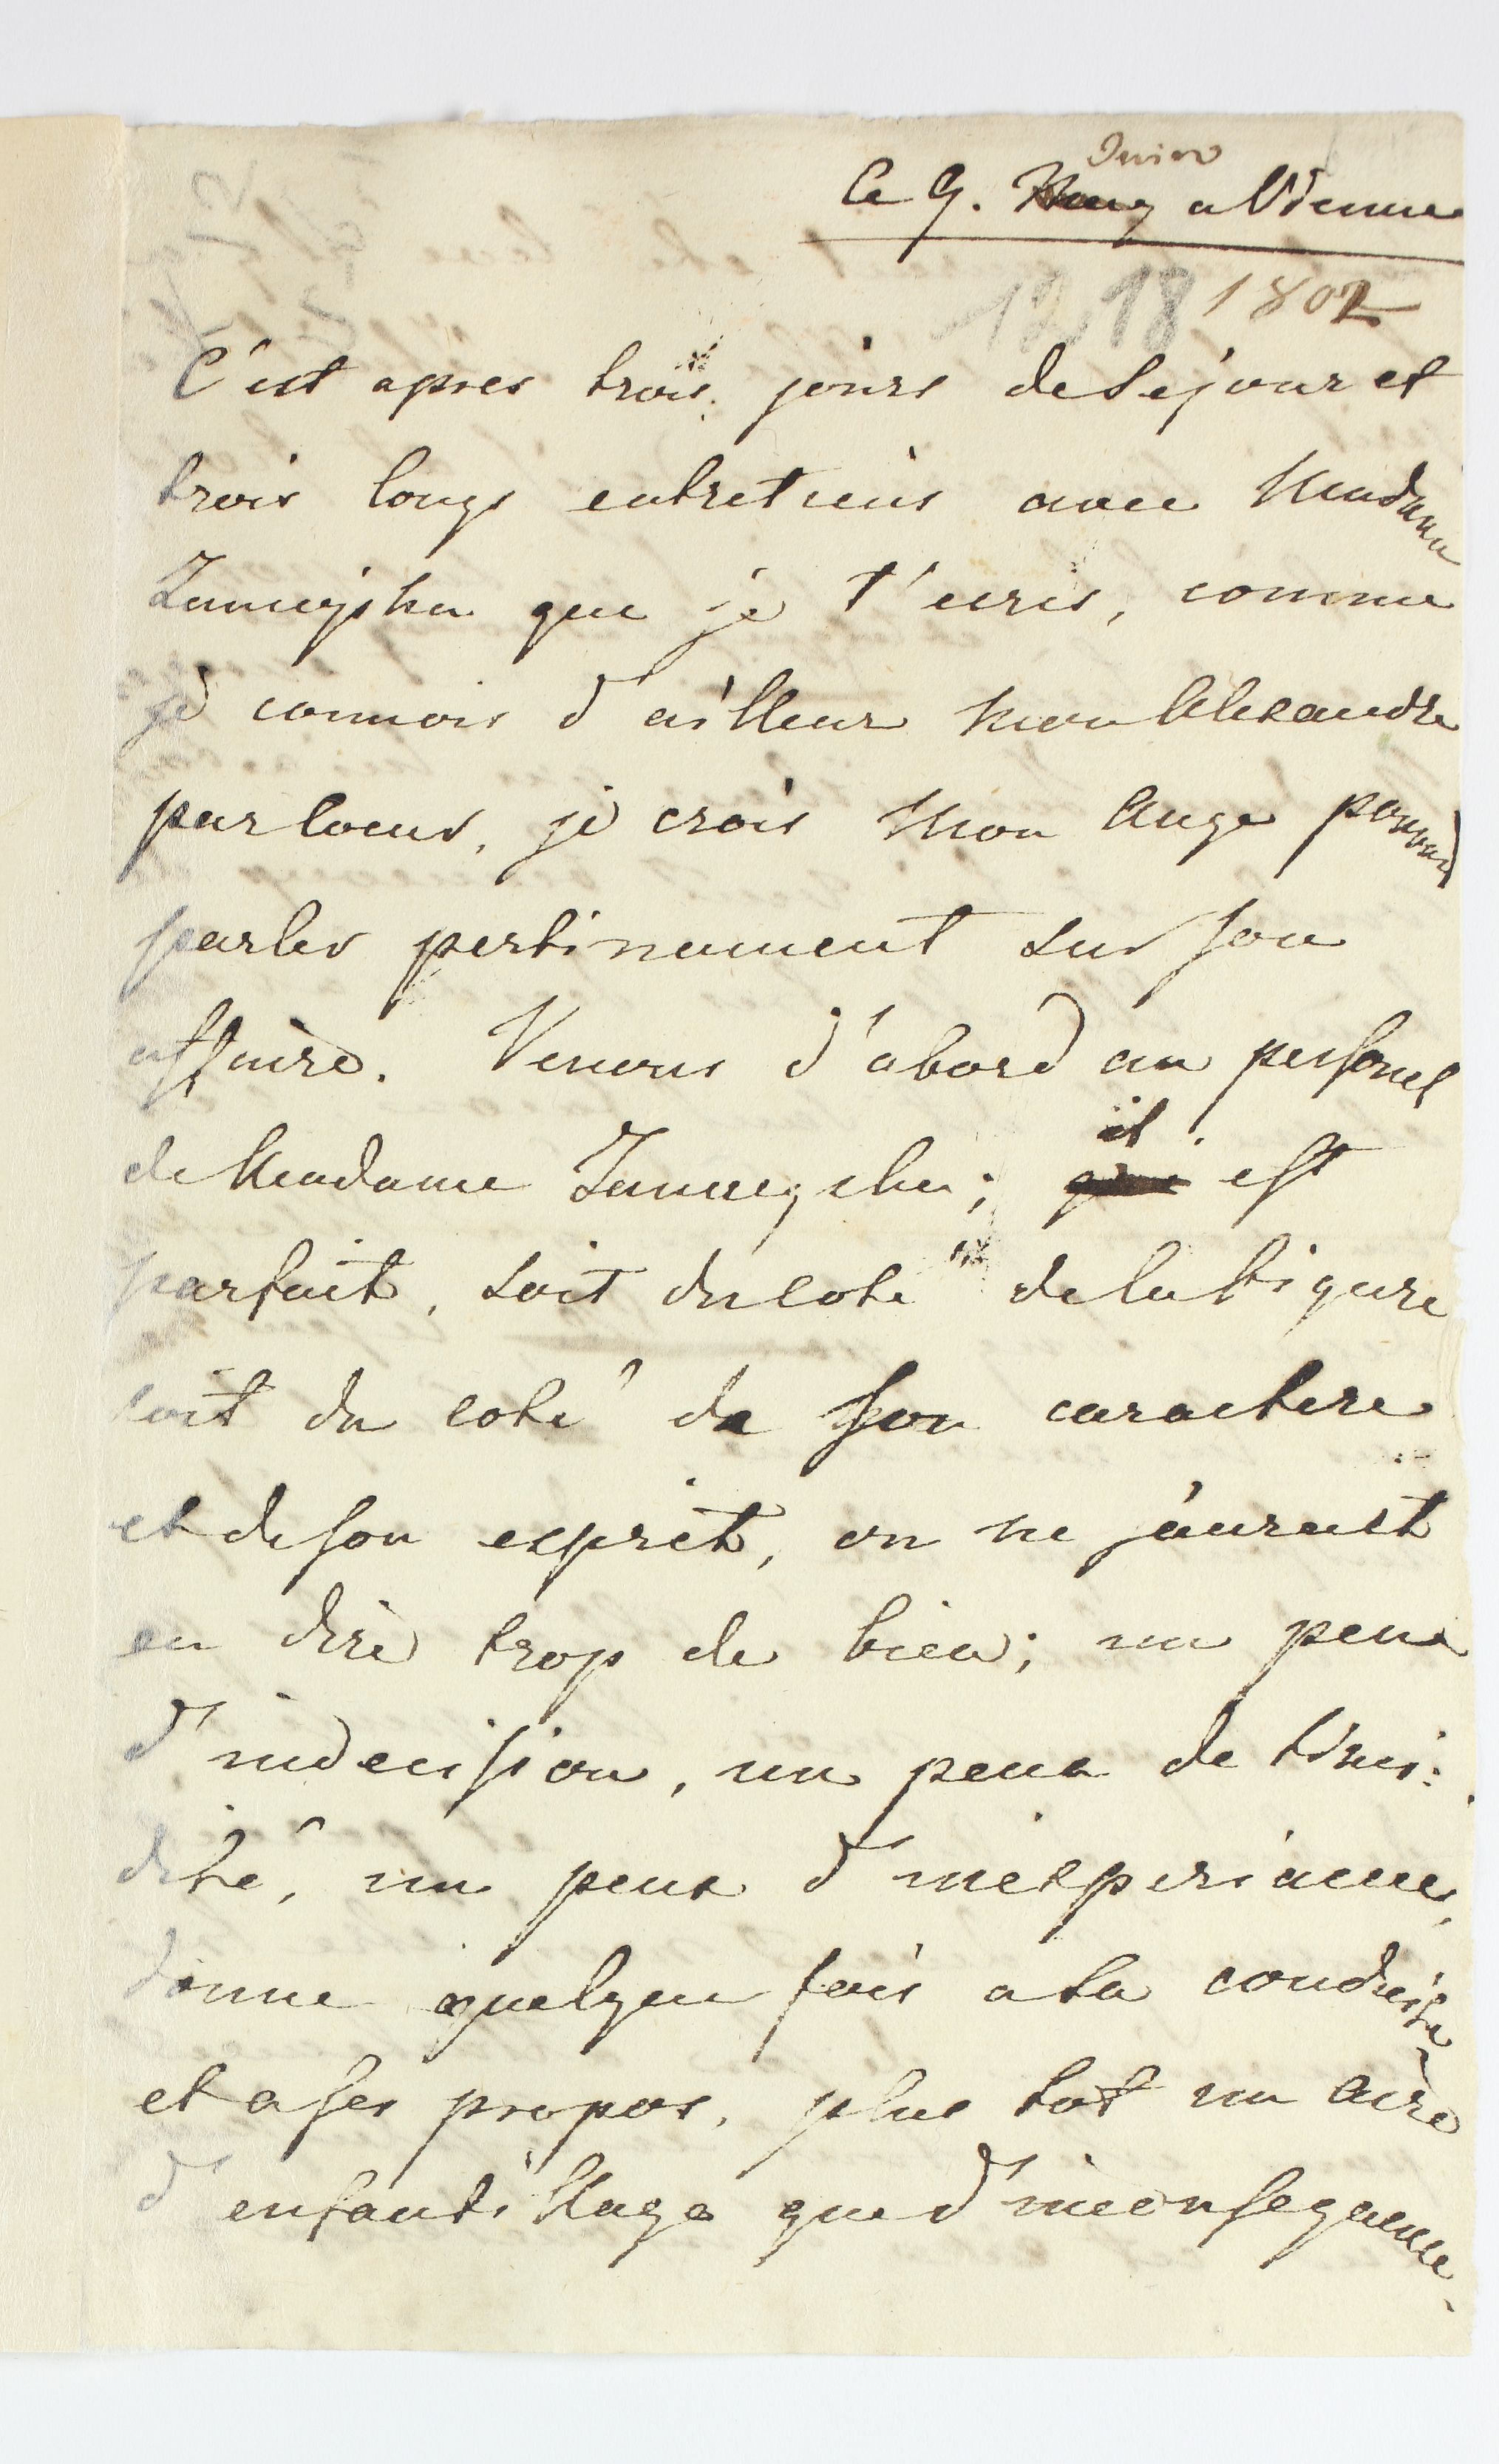 Juin
Ce 9. a Vienne
12 18 1802
C'est apres trois jours de sejour et
trois longs entretiens avec Madame
Zamoyska que je t'ecris, comme
je connois d'ailleur mon Alexandre
par coeur, je crois mon Ange pouvoir
parler pertinament sur son
affaire. Venons d'abord au personel
de Madame Zamoyska; il est
parfait, soit du coté de la figure
soit du coté de son caractere
et de son esprit, on ne sauroit
en dire trop de bien; un peux
d'indecision, un peux de timi:
dité, un peux d'inexperience,
donne quelque fois a sa conduite
et a ses propos, plus tot un aire
d'enfantillage que d'inconsequence.